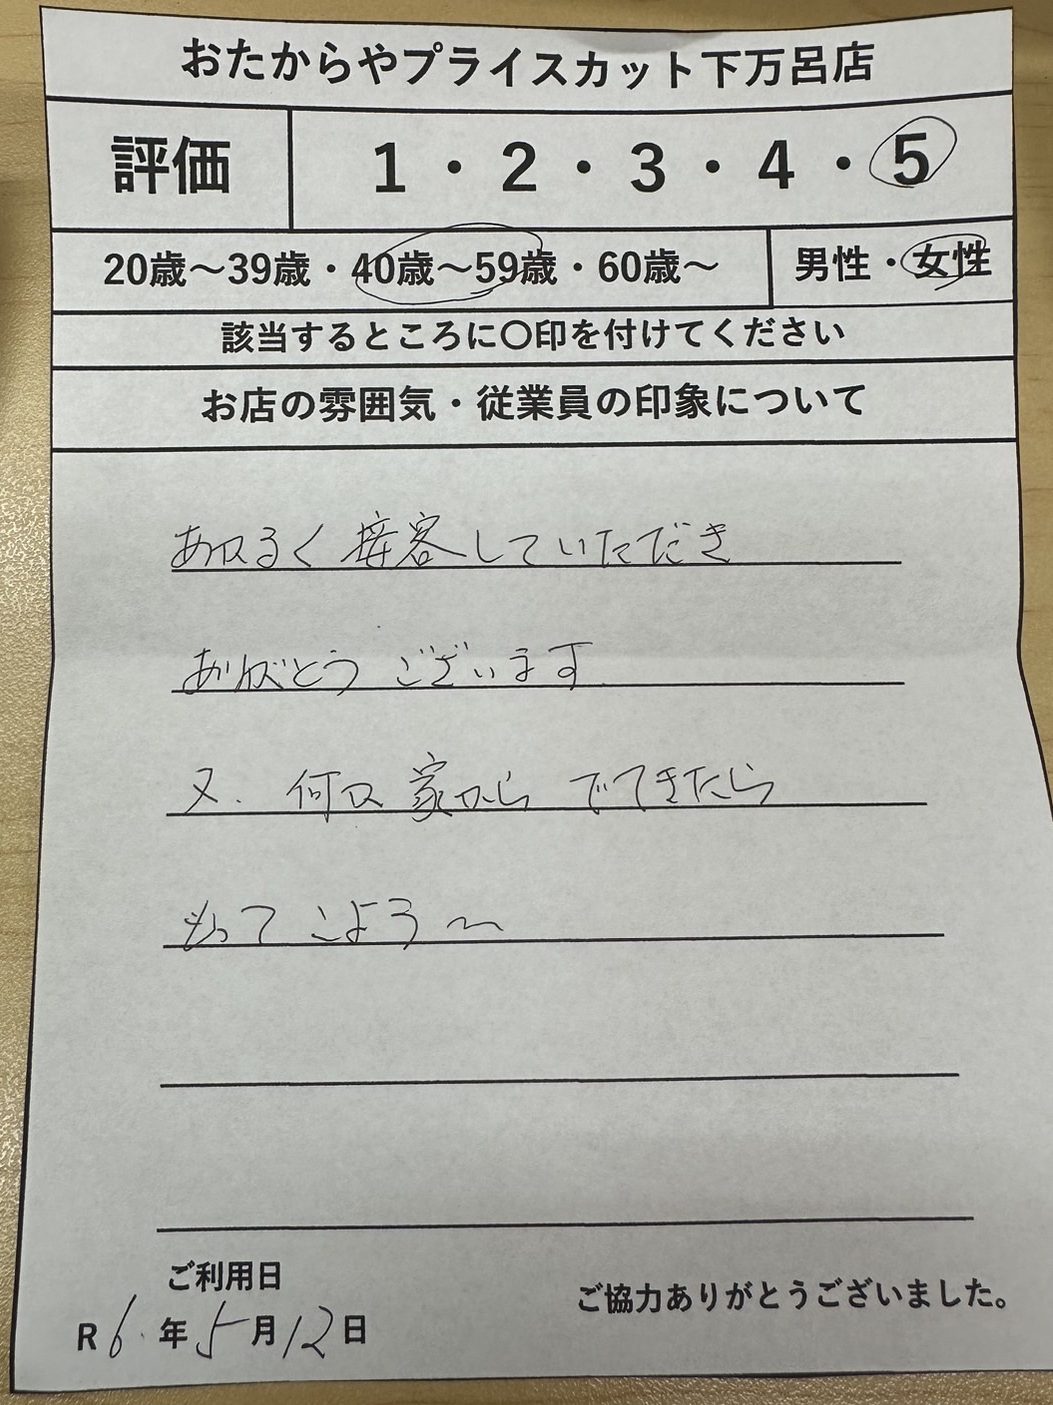 おたからやプライスカット下万呂店
評価
1・2・3・4・5
20歳～39歳・40歳～59歳・60歳～
男性・女性
該当するところに〇印を付けてください
お店の雰囲気・従業員の印象について
あかるく接客していただき
ありがとうございます
又、何か家からでてきたら
もってこよう～
ご利用日
R6.年5月12日
ご協力ありがとうございました。